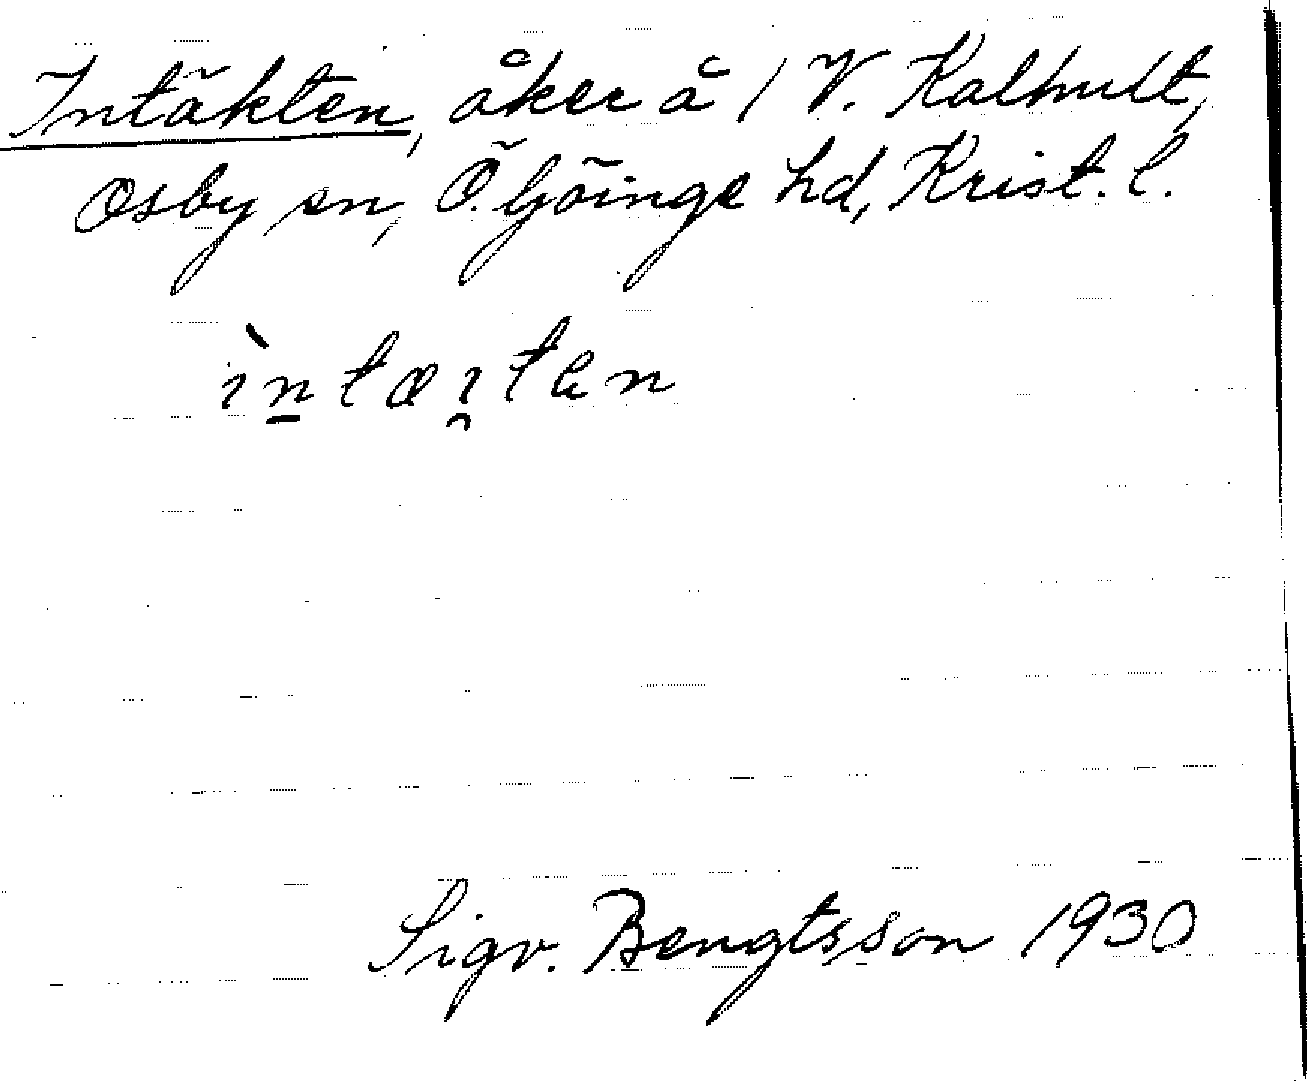 Intäkten, åker å 1 V. Kalhult,
Osby sn, Ö. Göinge hd, Krist. l.
ìn̠tæı̯ten
Sigv. Bengtsson 1930